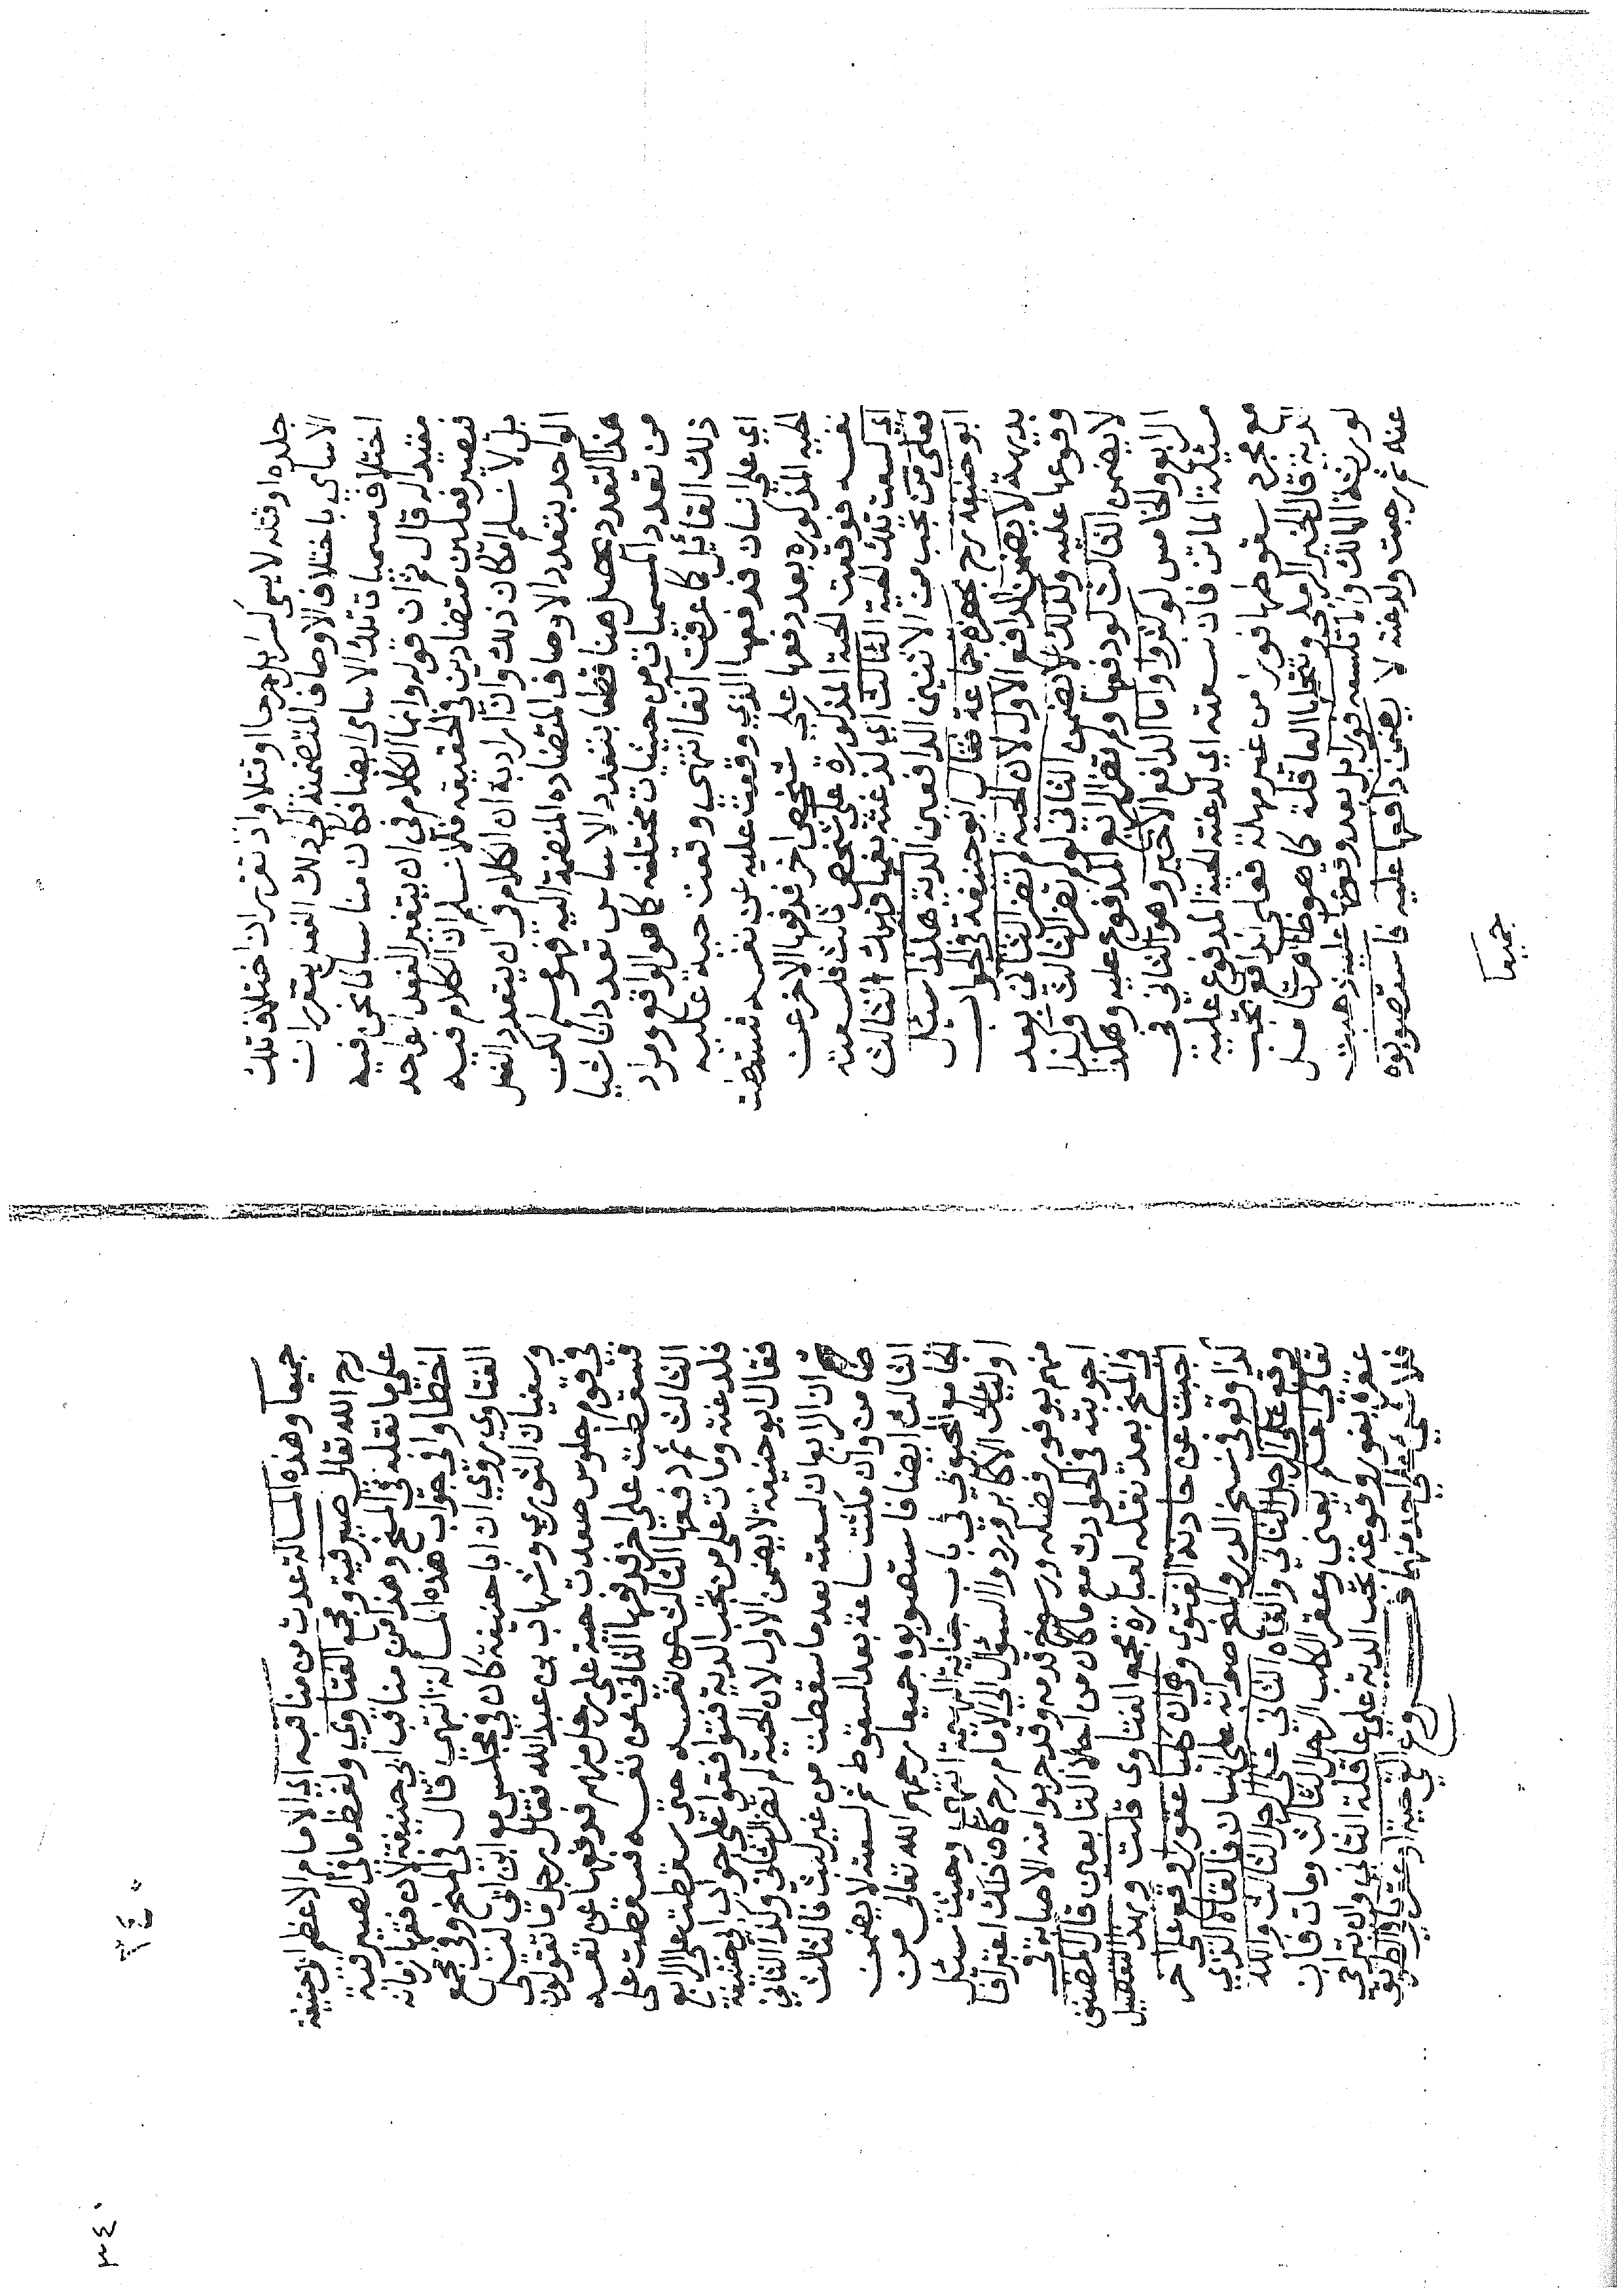 جلده او قتله لا يسمى كسرا بل جرحا او قتلا واذ تقرر ان اختلاف تلك
الاسامي باختلاف الاوصاف المتضمنة الى ذلك الفعل تقرر ان
اختلاف مسميات تلك الاسامي ايضا فكان مناسبا لما نحن فيه
مفيد له قال ثم ان قوله وانما الكلام في ان يتغير الفعل الواحد
فتصير فعلين متضادين في الحقيقه فلا نسلم ان الكلام فيه
بل لا نسلم امكان ذلك وان اراد به ان الكلام في ان يتعدد الفعل
الواحد بتعدد الاوصاف المتضاده المنضمة اليه فهو مسلم لكن
هذا التعدد يحصل هنا قطعا بتعدد الاسامي تعددا ناشيا
من تعدد المسميات من حيثيات مختلفه كما هو الواقع ومراد
ذلك القائل كما عرفت آنفا انتهى وقعت حية عليه
اي على انسان فدفعها الذي وقعت عليه عن نفسه فسقطت
الحيه المذكوره بعد دفعها على شخص اخر فدفعها الاخر عن
نفسه فوقعت الحية المذكورة على شخص ثالث فلسعته
اي لسعت تلك الحية الثالث اي لدغته بفمها فهلك الثالث
فعلى من تجب من الاثنين الدافعين الدية هكذا سئل
ابو حنيفه رح بحضرة جماعة فقال ابو حنيفة في الجواب
بديهة لا يضمن الدافع الاول لان الحية لم تضر الثاني بعد
وقوعها عليه وكذلك لا يضمن الثاني لو لم تضر الثالث وكذا
لا يضمن الثالث لو دفعها ولم تضر الرابع المدفوع عليه وهكذا
الرابع والخامس لو كثروا واما الدافع الاخير وهو الثاني في
مسئلة الماتن فان لسعته اي لدغته الحية المدفوع عليه
مع مجرد سقوطها فورا من غير مهلة فعلى الدافع تجب
الدية قال الخير الرملي وتتحملها العاقلة كما هو ظاهر تامل
لورثة الهالك وان لم تلسعه فورا بل بعد وقوعها عليه ذهبت
عنه ثم رجعت ولدغته لا يضمن دافعها عليه فاستصوبوه
جميعا
جميعا وهذه المسالة عدت من مناقبه اي الامام الاعظم ابو حنيفة
رح الله تعالى صيرفية ومجمع الفتاوي ولفظ ما في الصيرفية
على ما نقله في المنح وهذا من مناقب ابي حنيفة لان فقها زمانه
اخطاوا في جواب هذه المسالة انتهى قال في المنح وفي مجمع
الفتاوي روي ان ابا حنيفة كان في مجلس مع ابن ابي ليلى
وسفيان الثوري وشهاب بن عبد الله فقال رجل ما تقولون
في قوم جلوس صعدت حية على رجل منهم فدفعها عن نفسه
فسقطت على اخر فدفعها الثاني عن نفسه فسقطت على
الثالث ثم دفعها الثالث عن نفسه حتى سقطت على الرابع
فلدغته ومات على من تجب الدية فتوافقوا على جواب ابي حنيفة
فقال ابو حنيفة لا يضمن الاول لان الحية لم تضر الثاني وكذا الثاني
ثم ان الرابع ان لسعته بعد ما سقطت من غير لبث فالثالث
ضامن وان مكثت ساعة بعد السقوط ثم لسعته لا يضمن
الثالث ايضا فاستصوبوه جميعا رحمهم الله تعالى من
الجامع المحبوبي في باب جناية البهيمة انتهى وحيث سئل
اوليك الاكابر وردوا السؤال الى الامام رح كان ذلك اعترافا
منهم بوفور فضله ورسوخ قدمه وقد جربوا منه الاصابة في
اجوبته في الحوادث مع ما كان من اجلا التابعين قال المصنف
في المنح بعد نقله لعبارة مجمع الفتاوى قلت وبهذا التفصيل
اجبت عن حادثة الفتوى وهي ان كلبا عقورا وقع على اخر
كذا وقع في نسخ الدر والمنح صوابه على انسان فالقاه الذي
وقع على الرجل الثاني والقاه الثاني على الرجل الثالث والله
تعالى اعلم يعني وعقر الكلب الرجل الثالث ومات فان
عقره بفور وقوعه تجب الدية على عاقلة الثاني وان بتراخي
فلا شيء على احد منهما فــــروع
٣٤٠